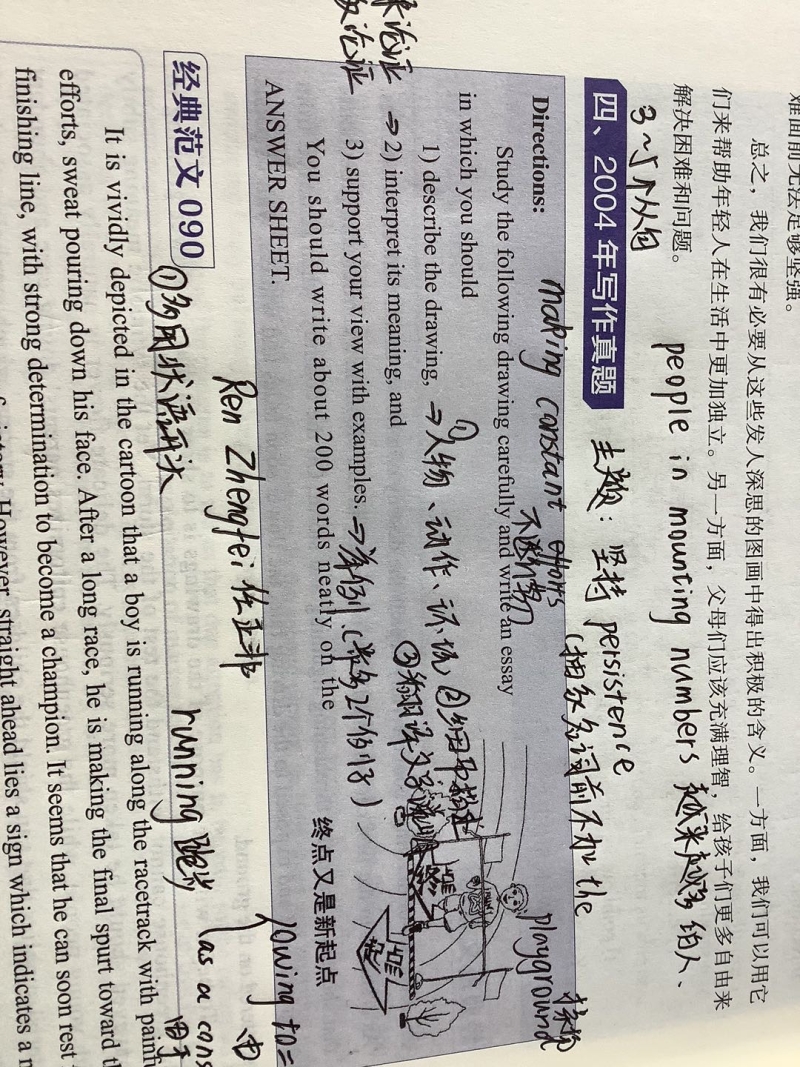 难面前无法足够坚强。
总之，我们很有必要从这些发人深思的图画中得出积极的含义。一方面，我们可以用它
们来帮助年轻人在生活中更加独立。另一方面，父母们应该充满理智，给孩子们更多自由来
解决困难和问题。
people in mounting numbers 越来越多的人、
3~5个从句
四、2004 年写作真题
主题：坚持 persistence
(抽象名词前不加 the
making constant efforts
不断努力
playground 操场
Directions:
Study the following drawing carefully and write an essay
in which you should
1) describe the drawing,
⇒ ①人物、动作、环境
②细节描述
2) interpret its meaning, and
③翻译文字说明
3) support your view with examples.
⇒ 举例.(最多2个例子)
You should write about 200 words neatly on the
ANSWER SHEET.
终点
起点
终点又是新起点
反论证
owing to =
Ren Zhengfei 任正非
running 跑步
as a cons
经典范文 090
①多用状语开头
It is vividly depicted in the cartoon that a boy is running along the racetrack with painf
efforts, sweat pouring down his face. After a long race, he is making the final spurt toward t
finishing line, with strong determination to become a champion. It seems that he can soon rest
However, straight ahead lies a sign which indicates a n